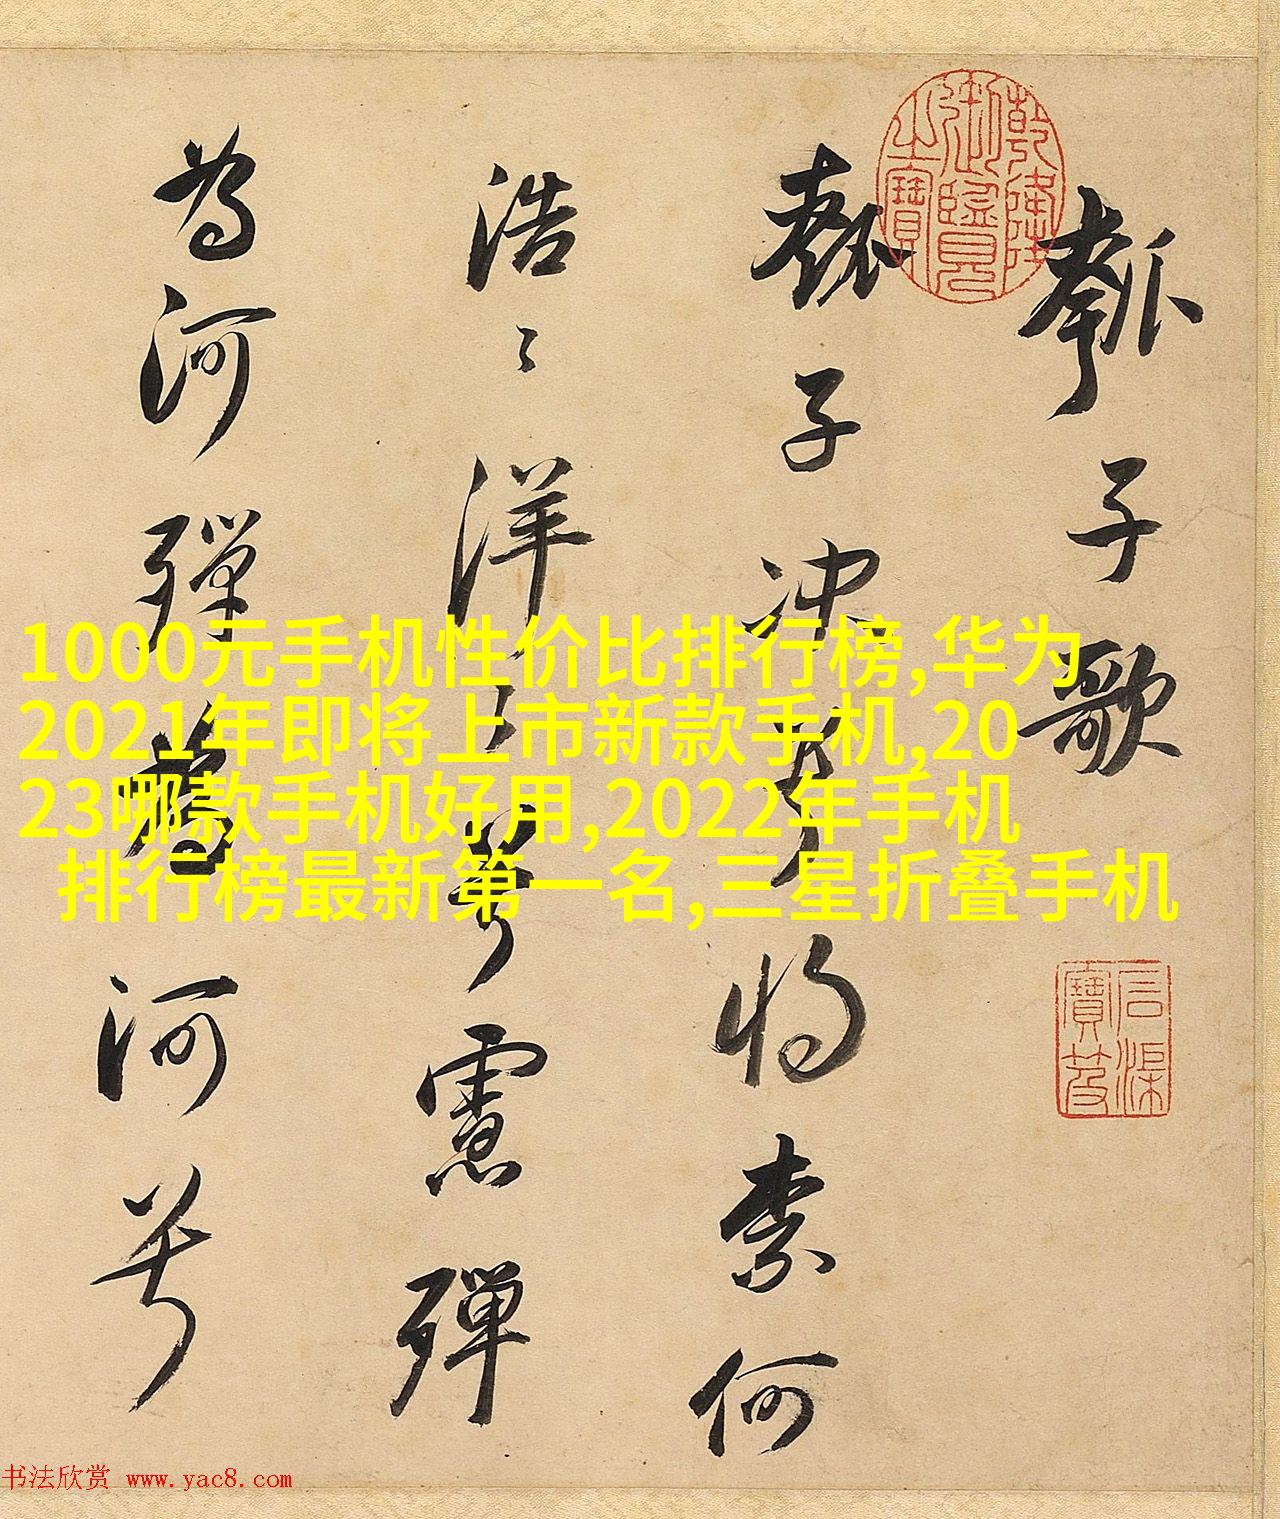 瓠子歌
瓠子决兮將柰何
浩〻洋〻兮慮殫
為河殫為河兮
乾隆御覽之寶
石渠寶笈
1000元手机性价比排行榜,华为
2021年即将上市新款手机,20
23哪款手机好用,2022年手机
排行榜最新第一名,三星折叠手机
书法欣赏 www.yac8.com